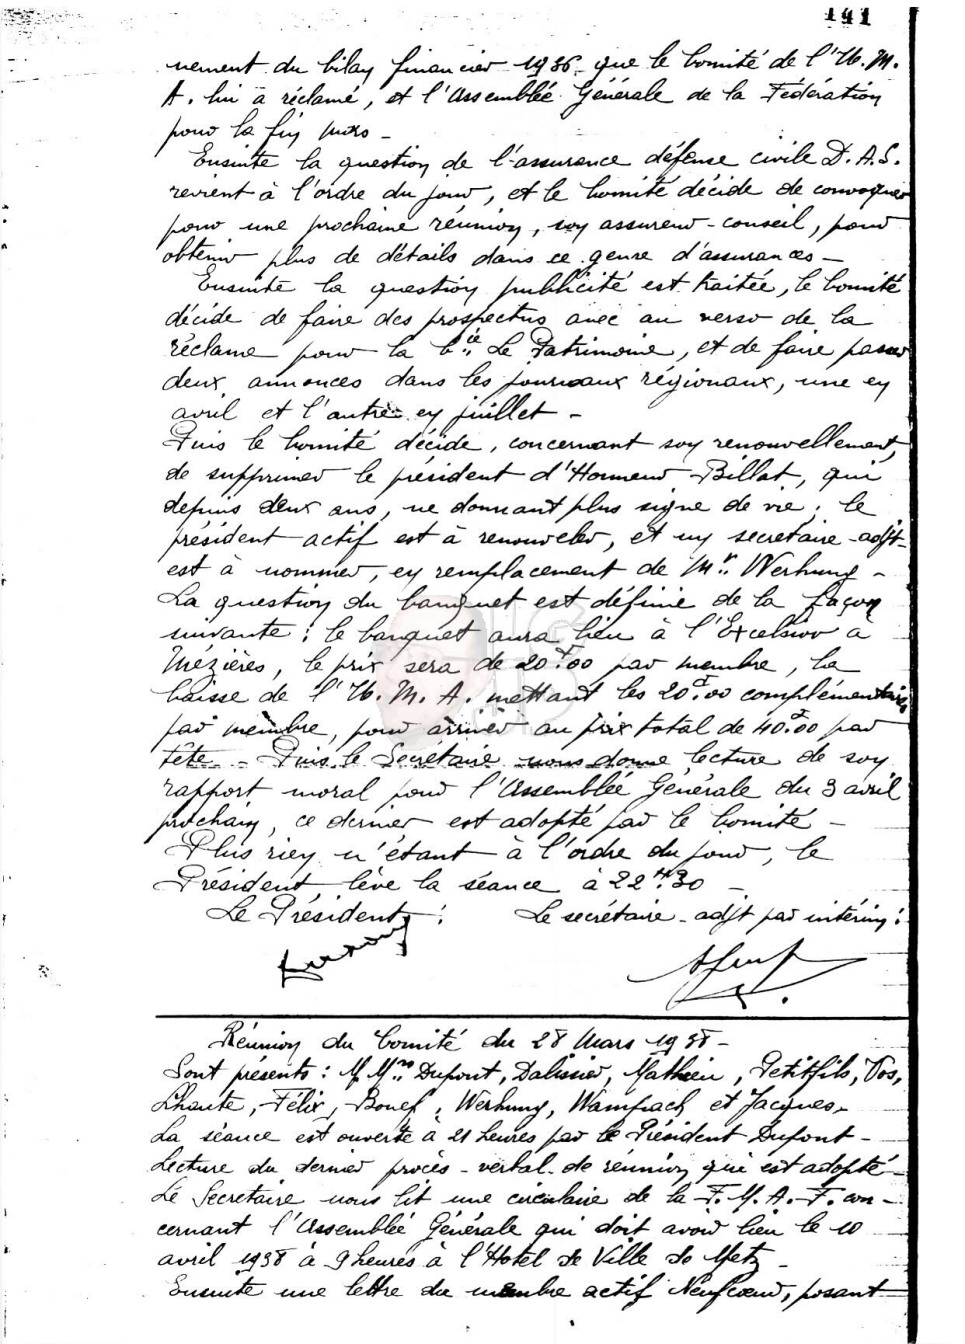 141
nement du bilan financier 1936 que le Comité de l'U. M.
A. lui a réclamé, et l'Assemblée Générale de la Fédération
pour la fin mars -
Ensuite la question de l'assurance défense civile D. A. S.
revient à l'ordre du jour, et le Comité décide de convoquer
pour une prochaine réunion, son assureur-conseil, pour
obtenir plus de détails dans ce genre d'assurances -
Ensuite la question publicité est traitée, le Comité
décide de faire des prospectus avec au verso de la
réclame pour la Cie Le Patrimoine, et de faire passer
deux annonces dans les journaux régionaux, une en
avril et l'autre en juillet -
Puis le Comité décide, concernant son renouvellement,
de supprimer le président d'Honneur Billat, qui
depuis deux ans, ne donnant plus signe de vie ; le
président actif est à renouveler, et un secrétaire-adjt-
est à nommer, en remplacement de Mr. Werhung -
La question du banquet est définie de la façon
suivante : le banquet aura lieu à l'Excelsior à
Mézières, le prix sera de 20f00 par membre, la
Caisse de l'U. M. A. mettant les 20f00 complémentaires
par membre, pour arriver au prix total de 40f00 par
tête - Puis le Secrétaire nous donne lecture de son
rapport moral pour l'Assemblée Générale du 3 avril
prochain, ce dernier est adopté par le Comité -
Plus rien n'étant à l'ordre du jour, le
Président lève la séance à 22H30 -
Le Président : Le secrétaire-adjt par intérim :
Réunion du Comité du 28 Mars 1938 -
Sont présents : M.Mrs Dupont, Dalissier, Mathieu, Petitfils, Vos,
Lhoute, Félix, Bouef, Werhung, Wampach et Jacques -
La séance est ouverte à 21 heures par le Président Dupont -
Lecture du dernier procès-verbal de réunion qui est adopté -
Le Secrétaire nous lit une circulaire de la F. M. A. F. con-
cernant l'Assemblée Générale qui doit avoir lieu le 10
avril 1938 à 9 heures à l'Hotel de Ville de Metz -
Ensuite une lettre du membre actif Neufcoeur, posant